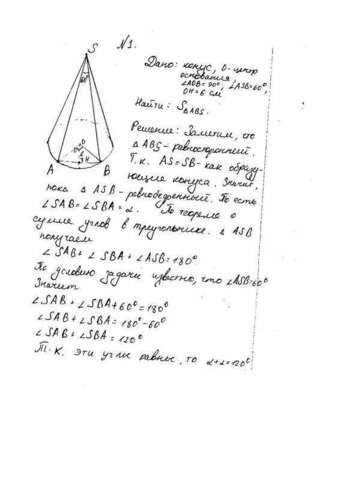 N1.
S
60°
O
H
A
B
Дано: конус, O-центр
основания,
∠AOB=90°, ∠ASB=60°,
OH=6 см
Найти: S△ABS.
Решение: Заметим, что
△ABS-равносторонний.
Т.к. AS=SB-как образу-
ющие конуса. Значит,
пока △ASB-равнобедренный. То есть
∠SAB=∠SBA=α. По теореме о
сумме углов в треугольнике. △ASB
получаем
∠SAB+∠SBA+∠ASB=180°
По условию задачи известно, что ∠ASB=60°
Значит
∠SAB+∠SBA+60°=180°
∠SAB+∠SBA=180°-60°
∠SAB+∠SBA=120°
Т.к. эти углы равны, то α+α=120°